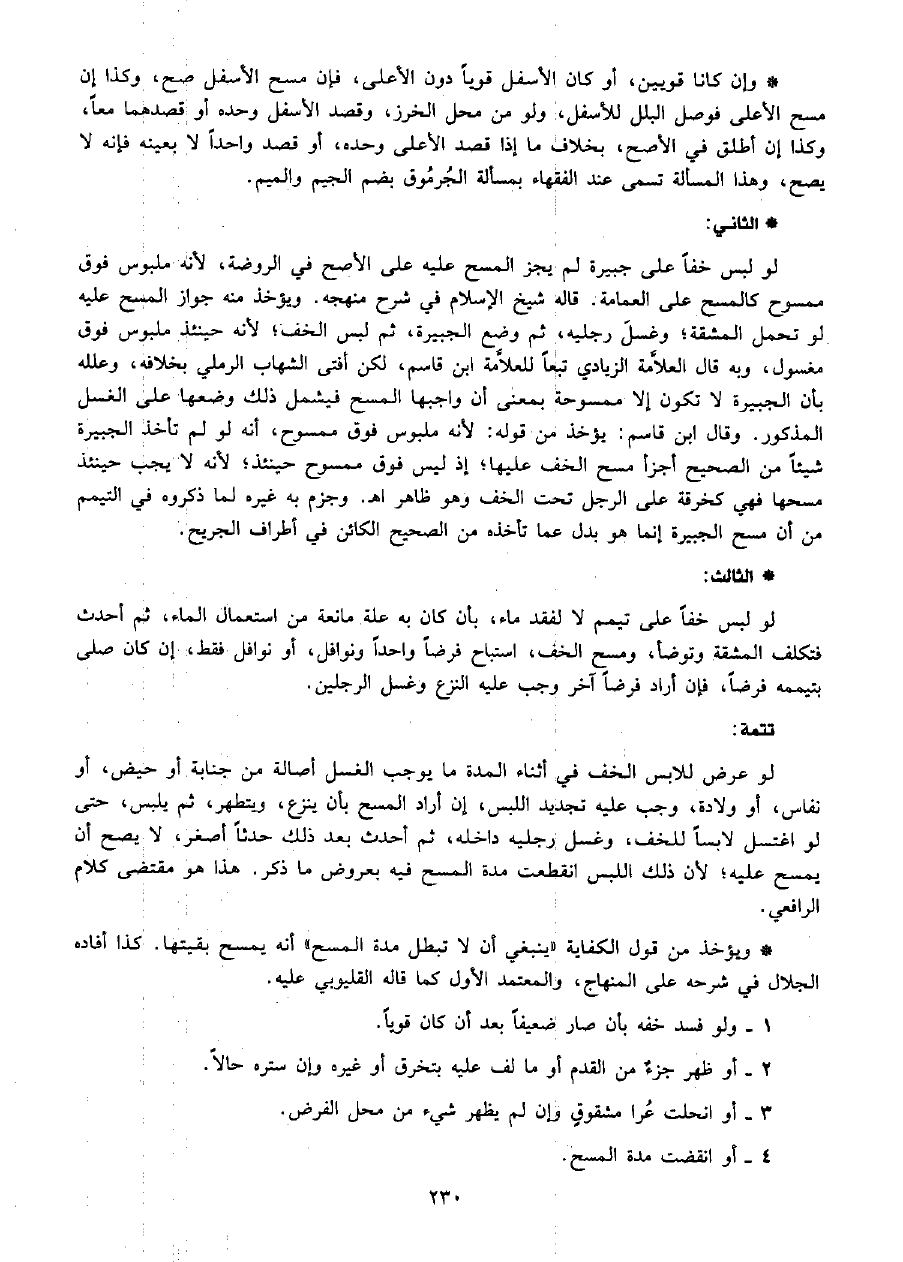 * وإن كانا قويين، أو كان الأسفل قوياً دون الأعلى، فإن مسح الأسفل صح، وكذا إن
مسح الأعلى فوصل البلل للأسفل، ولو من محل الخرز، وقصد الأسفل وحده أو قصدهما معاً،
وكذا إن أطلق في الأصح، بخلاف ما إذا قصد الأعلى وحده، أو قصد واحداً لا بعينه فإنه لا
يصح، وهذا المسألة تسمى عند الفقهاء بمسألة الجُرمُوق بضم الجيم والميم.
* الثاني:
لو لبس خفاً على جبيرة لم يجز المسح عليه على الأصح في الروضة، لأنه ملبوس فوق
ممسوح كالمسح على العمامة. قاله شيخ الإسلام في شرح منهجه. ويؤخذ منه جواز المسح عليه
لو تحمل المشقة؛ وغسلَ رجليه، ثم وضع الجبيرة، ثم لبس الخف؛ لأنه حينئذ ملبوس فوق
مغسول، وبه قال العلاَّمة الزيادي تبعاً للعلاَّمة ابن قاسم، لكن أفتى الشهاب الرملي بخلافه، وعلله
بأن الجبيرة لا تكون إلا ممسوحة بمعنى أن واجبها المسح فيشمل ذلك وضعها على الغسل
المذكور. وقال ابن قاسم: يؤخذ من قوله: لأنه ملبوس فوق ممسوح، أنه لو لم تأخذ الجبيرة
شيئاً من الصحيح أجزأ مسح الخف عليها؛ إذ ليس فوق ممسوح حينئذ؛ لأنه لا يجب حينئذ
مسحها فهي كخرقة على الرجل تحت الخف وهو ظاهر اهـ. وجزم به غيره لما ذكروه في التيمم
من أن مسح الجبيرة إنما هو بدل عما تأخذه من الصحيح الكائن في أطراف الجريح.
* الثالث:
لو لبس خفاً على تيمم لا لفقد ماء، بأن كان به علة مانعة من استعمال الماء، ثم أحدث
فتكلف المشقة وتوضأ، ومسح الخف، استباح فرضاً واحداً ونوافل، أو نوافل فقط، إن كان صلى
بتيممه فرضاً، فإن أراد فرضاً آخر وجب عليه النزع وغسل الرجلين.
تتمة:
لو عرض للابس الخف في أثناء المدة ما يوجب الغسل أصالة من جنابة أو حيض، أو
نفاس، أو ولادة، وجب عليه تجديد اللبس، إن أراد المسح بأن ينزع، ويتطهر، ثم يلبس، حتى
لو اغتسل لابساً للخف، وغسل رجليه داخله، ثم أحدث بعد ذلك حدثاً أصغر، لا يصح أن
يمسح عليه؛ لأن ذلك اللبس انقطعت مدة المسح فيه بعروض ما ذكر. هذا هو مقتضى كلام
الرافعي.
* ويؤخذ من قول الكفاية «ينبغي أن لا تبطل مدة المسح» أنه يمسح بقيتها. كذا أفاده
الجلال في شرحه على المنهاج، والمعتمد الأول كما قاله القليوبي عليه.
١ ـ ولو فسد خفه بأن صار ضعيفاً بعد أن كان قوياً.
٢ ـ أو ظهر جزءٌ من القدم أو ما لف عليه بتخرق أو غيره وإن ستره حالاً.
٣ ـ أو انحلت عُرا مشقوقٍ وإن لم يظهر شيء من محل الفرض.
٤ ـ أو انقضت مدة المسح.
٢٣٠